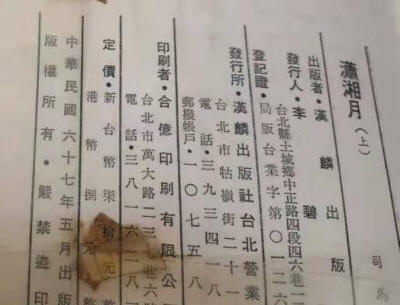 瀟湘月（上）
司馬
出版者・漢麟出版
發行人・李碧
台北縣土城鄉中正路四段四六巷二
登記證・局版台業字第０１２６
發行所・漢麟出版社台北營業
台北市牯嶺街二十一
電話・三九三四一八
郵撥帳戶・一０七五八
印刷者・合億印刷有限公
台北市萬大路二三
電話・三八一六二八
定價・新台幣柒拾元整
港幣捌元整
中華民國六十七年五月出版
版權所有・嚴禁盜印